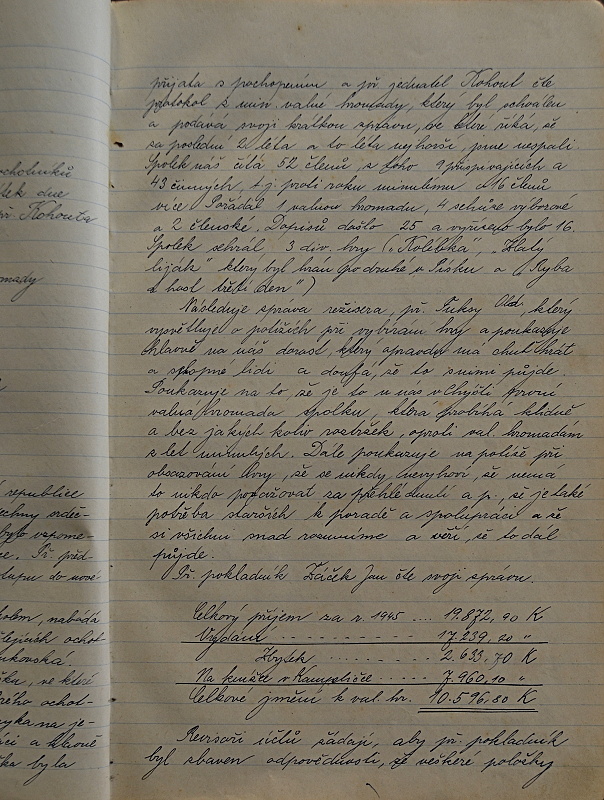 ocholníků
lek dne
př. Kohouta
omady
í republice
echny srdeč-
bylo vzpome-
ce. Př. před-
tupu do nové
holm, nabádá
lejních ochot
nkovská.
ku, ve které
rého ochot-
yka na je-
áci a hlavně
ka byla
přijata s pochopením a př. jednatel Kohout čte
protokol z min. valné hromady, který byl schválen
a podává svoji krátkou zprávu, ve které říká, že
za poslední 2 léta a to léta nejhorší, jsme nespali.
Spolek náš čítá 52 členů, z toho 9 přispívajících a
43 činných, t.j. proti roku minulému o 16 členů
více. Pořádal 1 valnou hromadu, 4 schůze výborové
a 2 členské. Dopisů došlo 25 a vyřízeno bylo 16.
Spolek sehrál 3 div. hry („Kolébka", „Zlatý
liják" který byl hrán podruhé v Písku a („Ryba
a host třetí den")
Následuje zpráva režisera, př. Fuksy Old., který
vysvětluje o potížích při vybírání hry a poukazuje
hlavně na náš dorost, který opravdu má chuť hrát
a schopné lidi a doufá, že to s nimi půjde.
Poukazuje na to, že je to u nás v Chyšti první
valná hromada spolku, která probíhá klidně
a bez jakých koliv rozbržek, oproti val. hromadám
z let minulých. Dále poukazuje na potíže při
obsazování hry, že se nikdy nevyhoví, že nemá
to nikdo považovat za přehlédnutí a p., že je také
potřeba starších k poradě a spolupráci a že
si všichni snad rozumíme a věří, že to dál
půjde.
Př. pokladník Žáček Jan čte svoji zprávu.
Celkový příjem za r. 1945 .... 19.872,90 K
Vydání - - - - - - - - 17.239,20 "
Zbytek - - - - - - 2.633,70 K
Na knížce v Kampeličce - - - - 7.960,10 "
Celkové jmění k val. hr. 10.596,80 K
Revisoři účtů žádají, aby př. pokladník
byl zbaven odpovědnosti, že veškeré položky